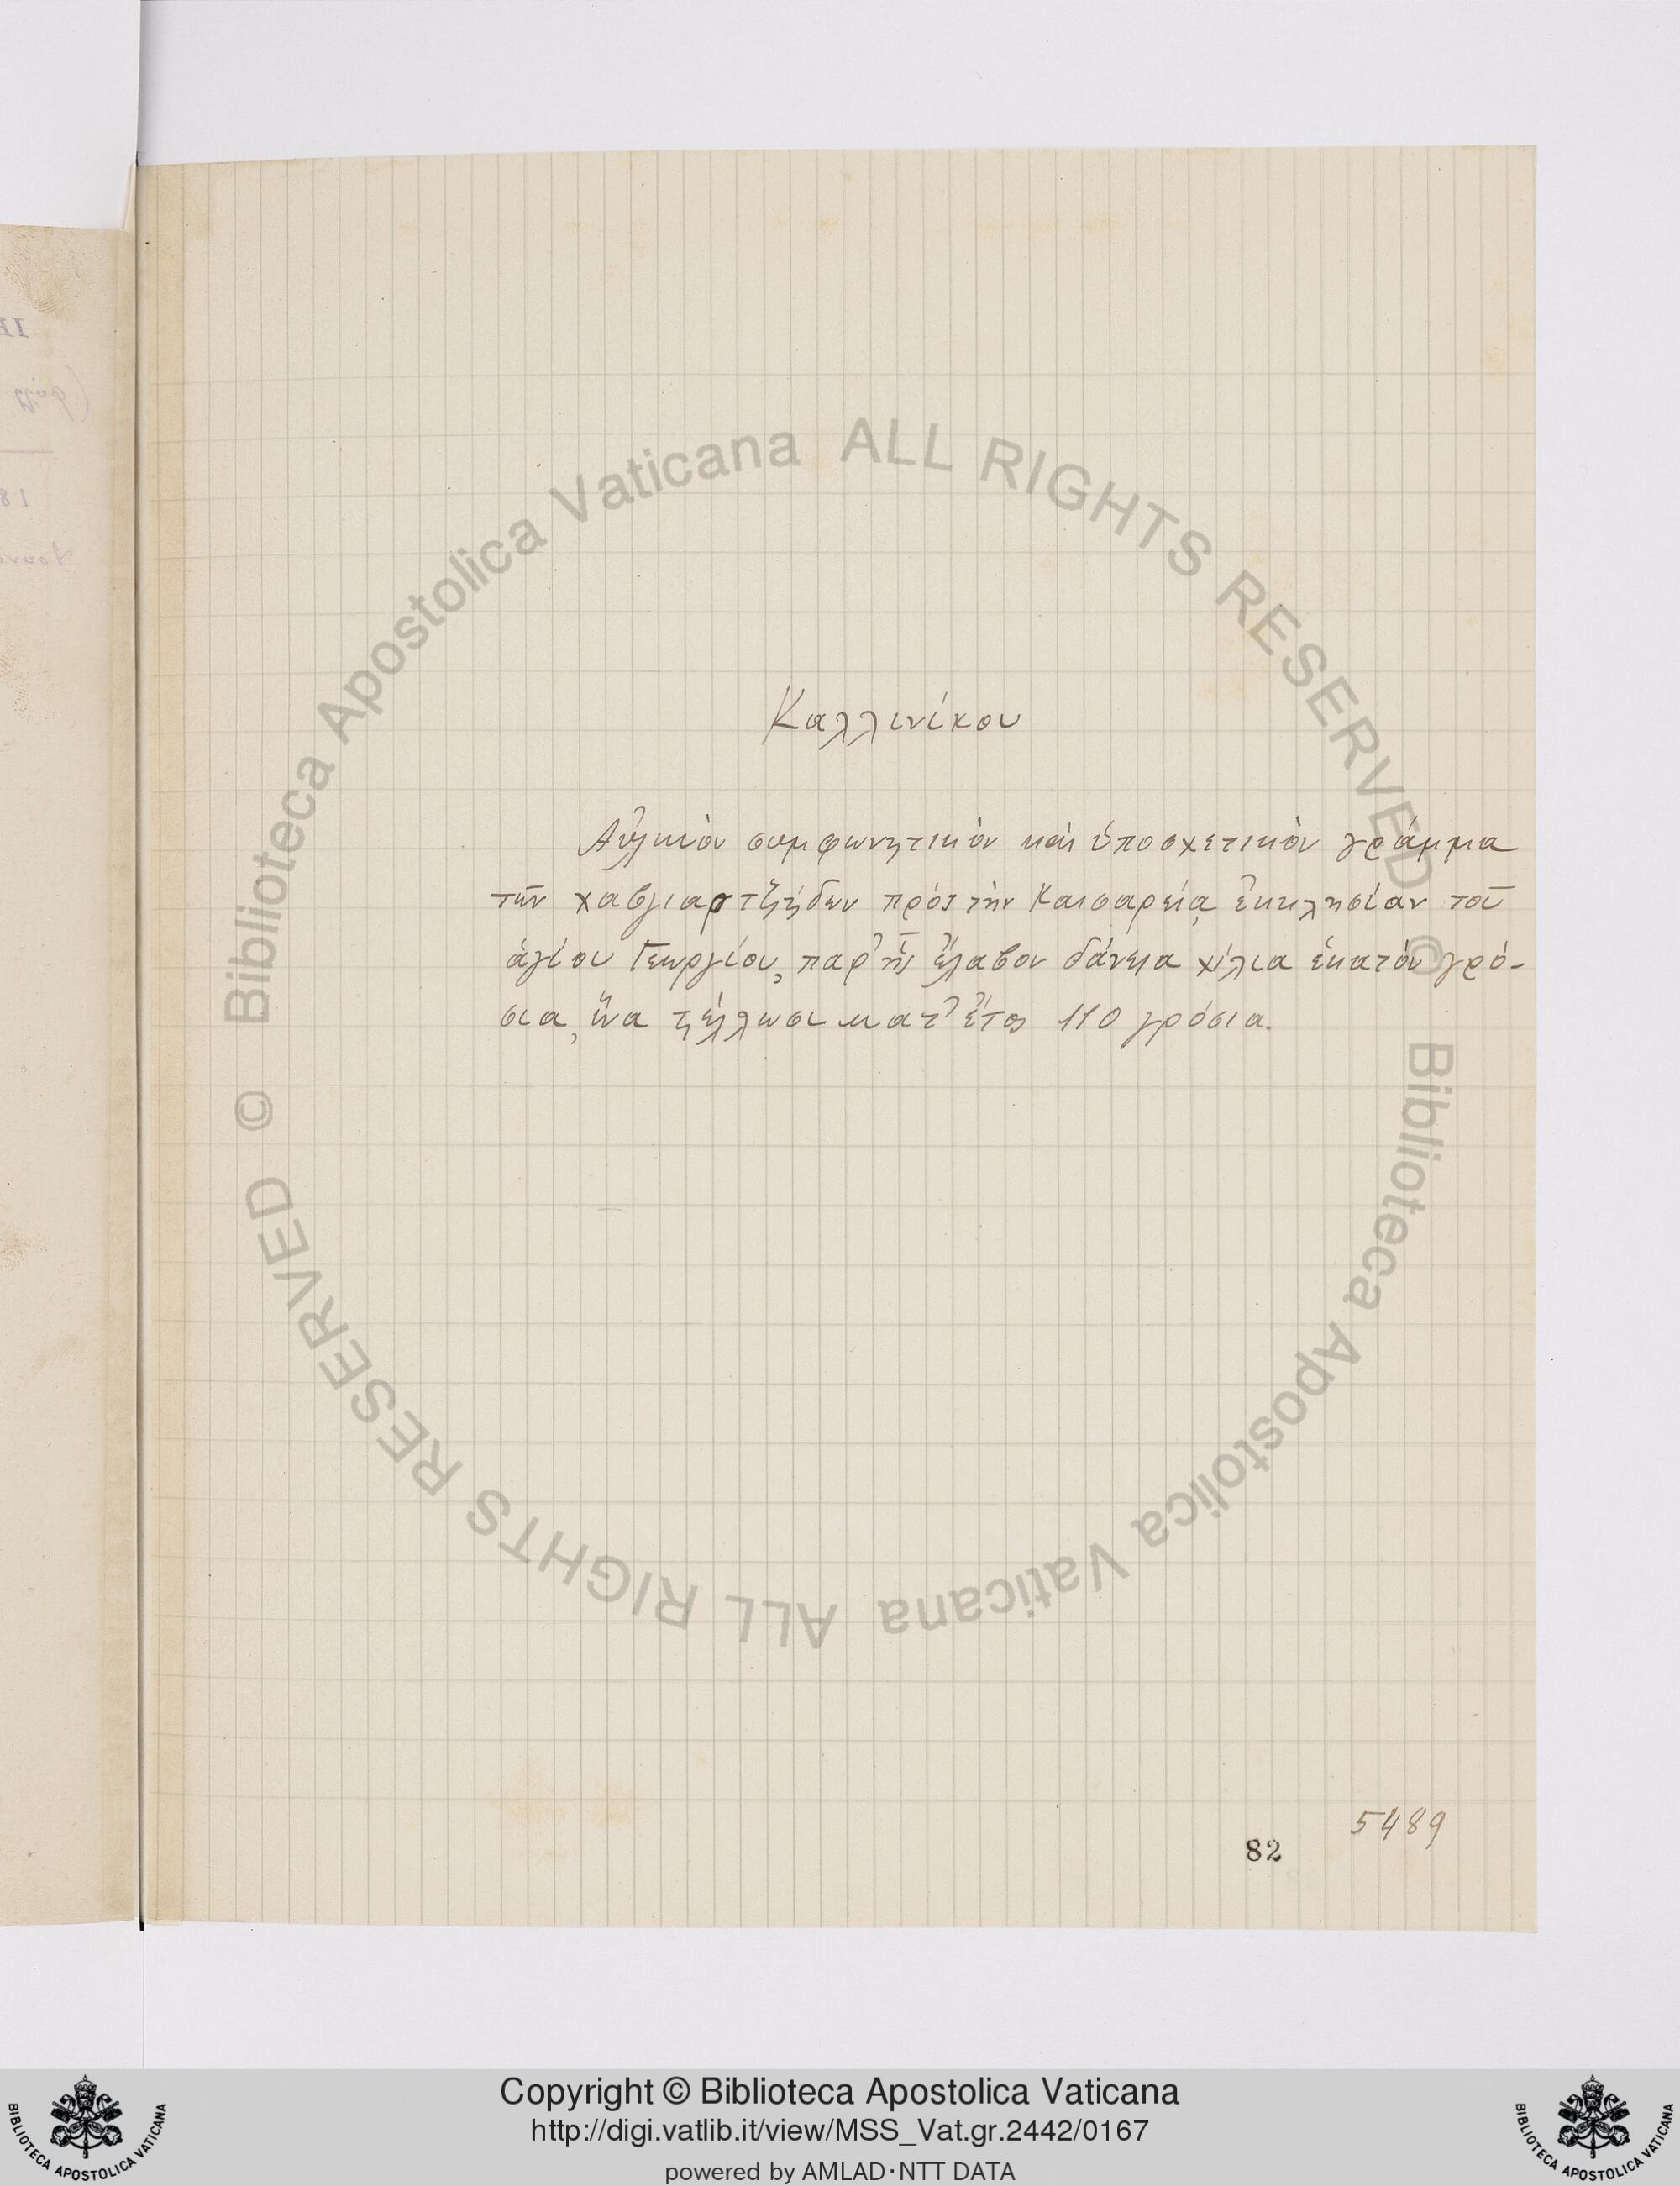 Καλλινίκου
συμφωνητικὸν καὶ ὑποσχετικὸν γράμμα
τῶν χαβγιαρτζήδων πρὸς τὴν Καισαρείᾳ ἐκκλησίαν τοῦ
ἁγίου Γεωργίου, παρ' ἧς ἔλαβον δάνεια χίλια ἑκατὸν γρό-
σια, ἵνα κατ' ἔτος 110 γρόσια.
5489
82
© Biblioteca Apostolica Vaticana ALL RIGHTS RESERVED
© Biblioteca Apostolica Vaticana ALL RIGHTS RESERVED
Copyright © Biblioteca Apostolica Vaticana
http://digi.vatlib.it/view/MSS_Vat.gr.2442/0167
powered by AMLAD·NTT DATA
BIBLIOTECA APOSTOLICA VATICANA
BIBLIOTECA APOSTOLICA VATICANA